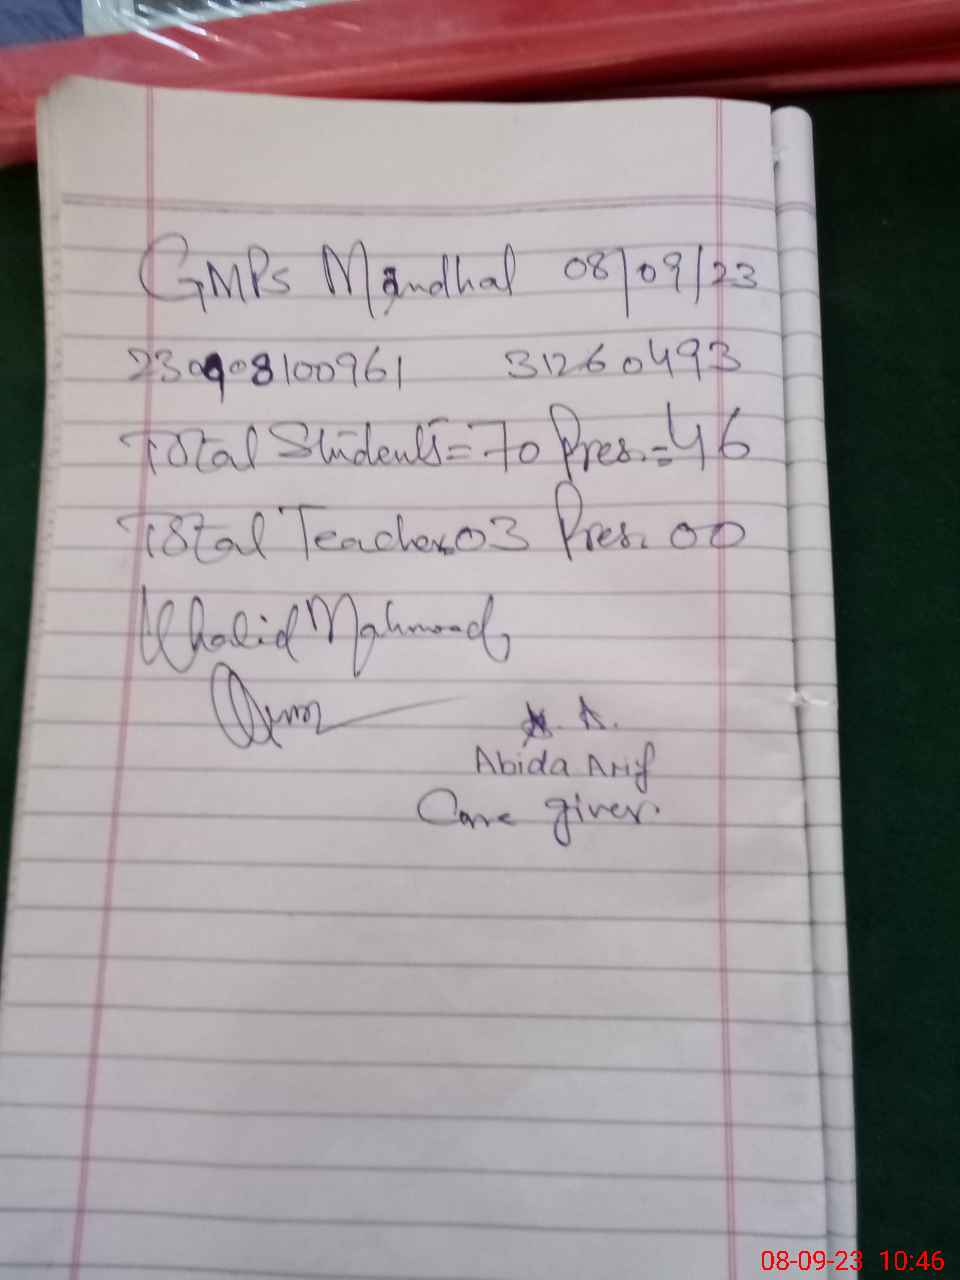 GMPS Mandhal 08/09/23
230908100961 31260493
Total Students = 70 Pres. = 46
Total Teacher 03 Pres. 00
Khalid Mahmood
A. A.
Abida Arif
Care giver.
08-09-23 10:46